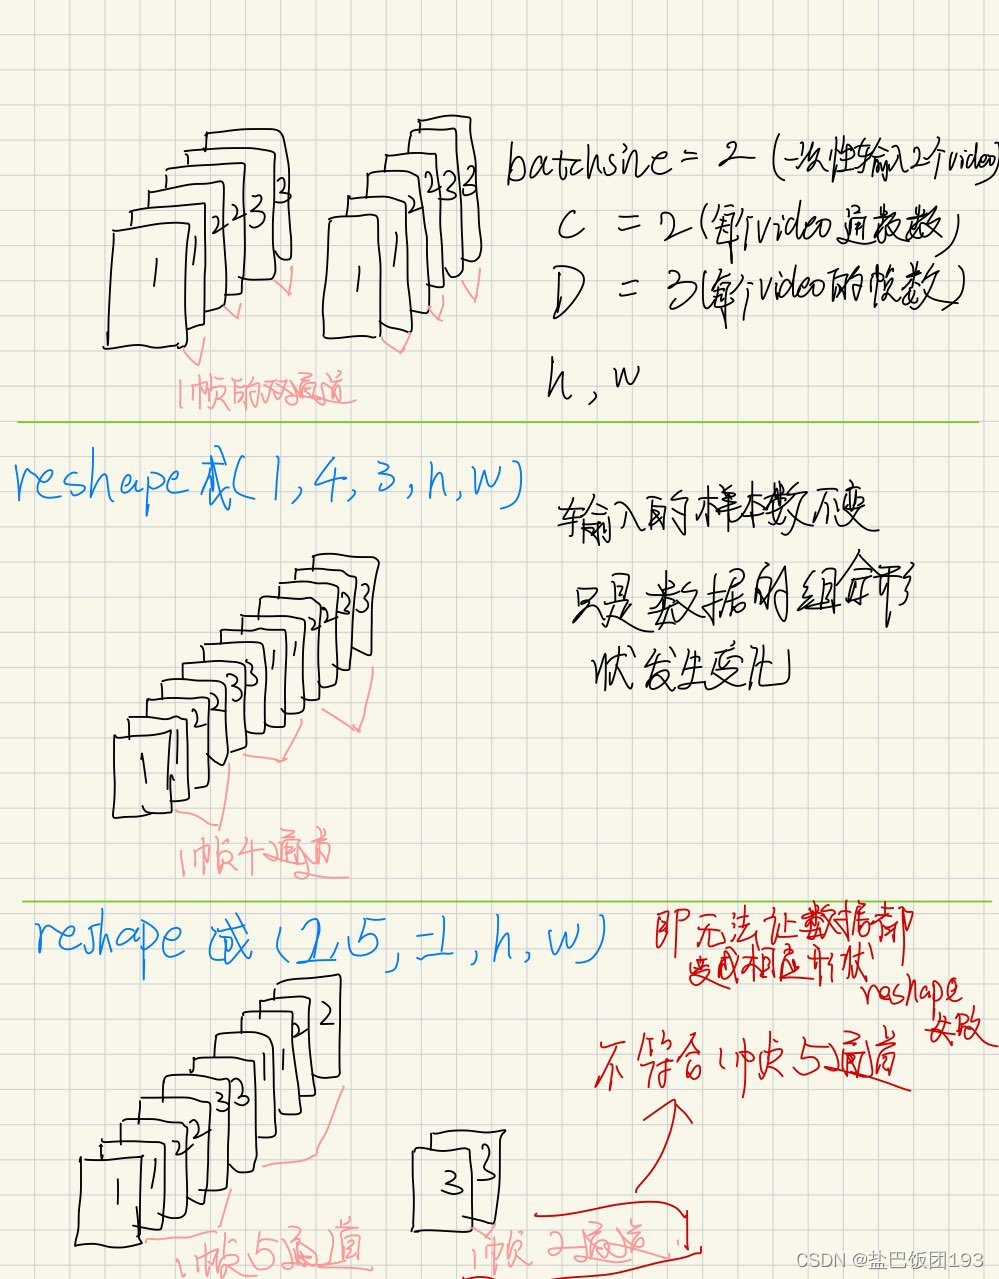 1 1 2 2 3 3
1 1 2 2 3 3
batchsize = 2 (一次性输入2个video)
C = 2 (每个video通数数)
D = 3 (每个video的帧数)
h , w
1帧的双通道
reshape成(1, 4, 3, h, w)
输入的样本数不变
只是数据的组合形
状发生变化
1 1 2 2 3 3 1 1 2 2 3 3
1帧4通道
reshape 成 (1, 5, -1, h, w)
即无法让数据都
变成相应形状
reshape
失败
不符合1帧5通道
1 1 2 2 3 3 1 1 2 2
3 3
1帧5通道
1帧2通道
CSDN @盐巴饭团193